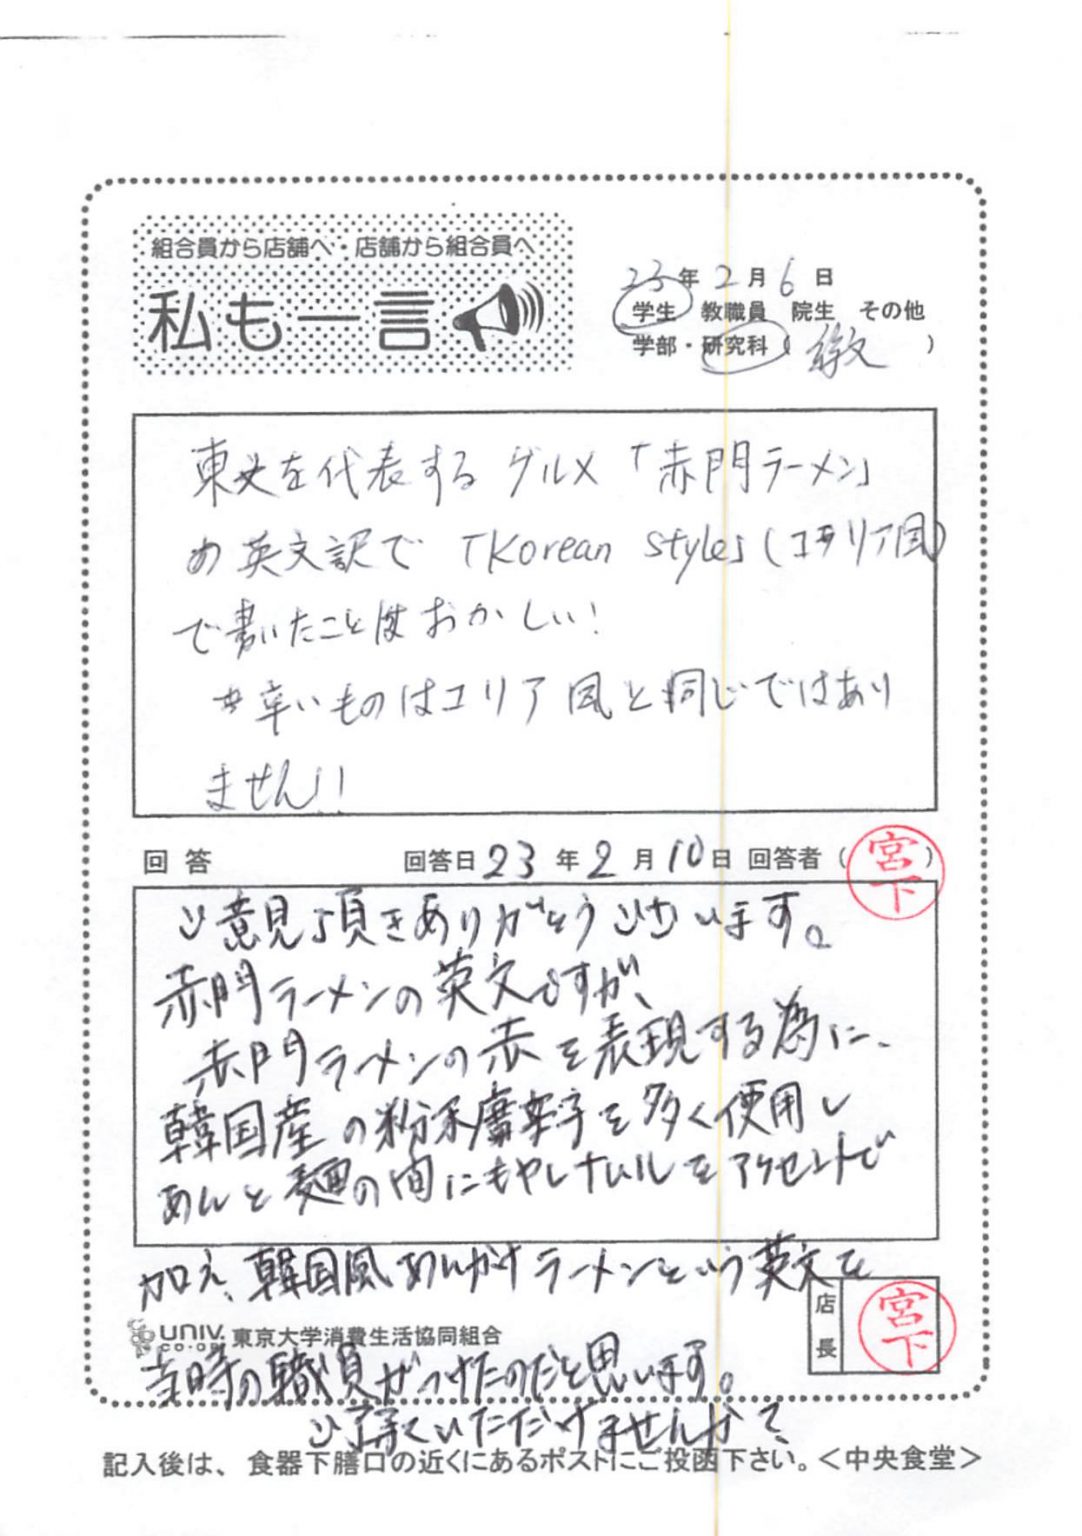 組合員から店舗へ・店舗から組合員へ
私も一言
23年2月6日
学生 教職員 院生 その他
学部・研究科( )
東大を代表する グルメ「赤門ラーメン」
の英文訳で「Korean Style」(コリア風)
で書いたことはおかしい!
辛いものはコリア風と同じではあり
ません!!
回答 回答日 23年2月10日 回答者(宮下)
ご意見頂きありがとうございます。
赤門ラーメンの英文ですが、
赤門ラーメンの赤を表現する為に、
韓国産の粉末唐辛子を多く使用し
あんと麺の間にもやしナムルをアクセントで
加え、韓国風あんかけラーメンという英文を
店長 宮下
UNIV. CO-OP 東京大学消費生活協同組合
当時の職員がつけたのだと思います。
ご了承いただけませんか?
記入後は、食器下膳口の近くにあるポストにご投函下さい。<中央食堂>